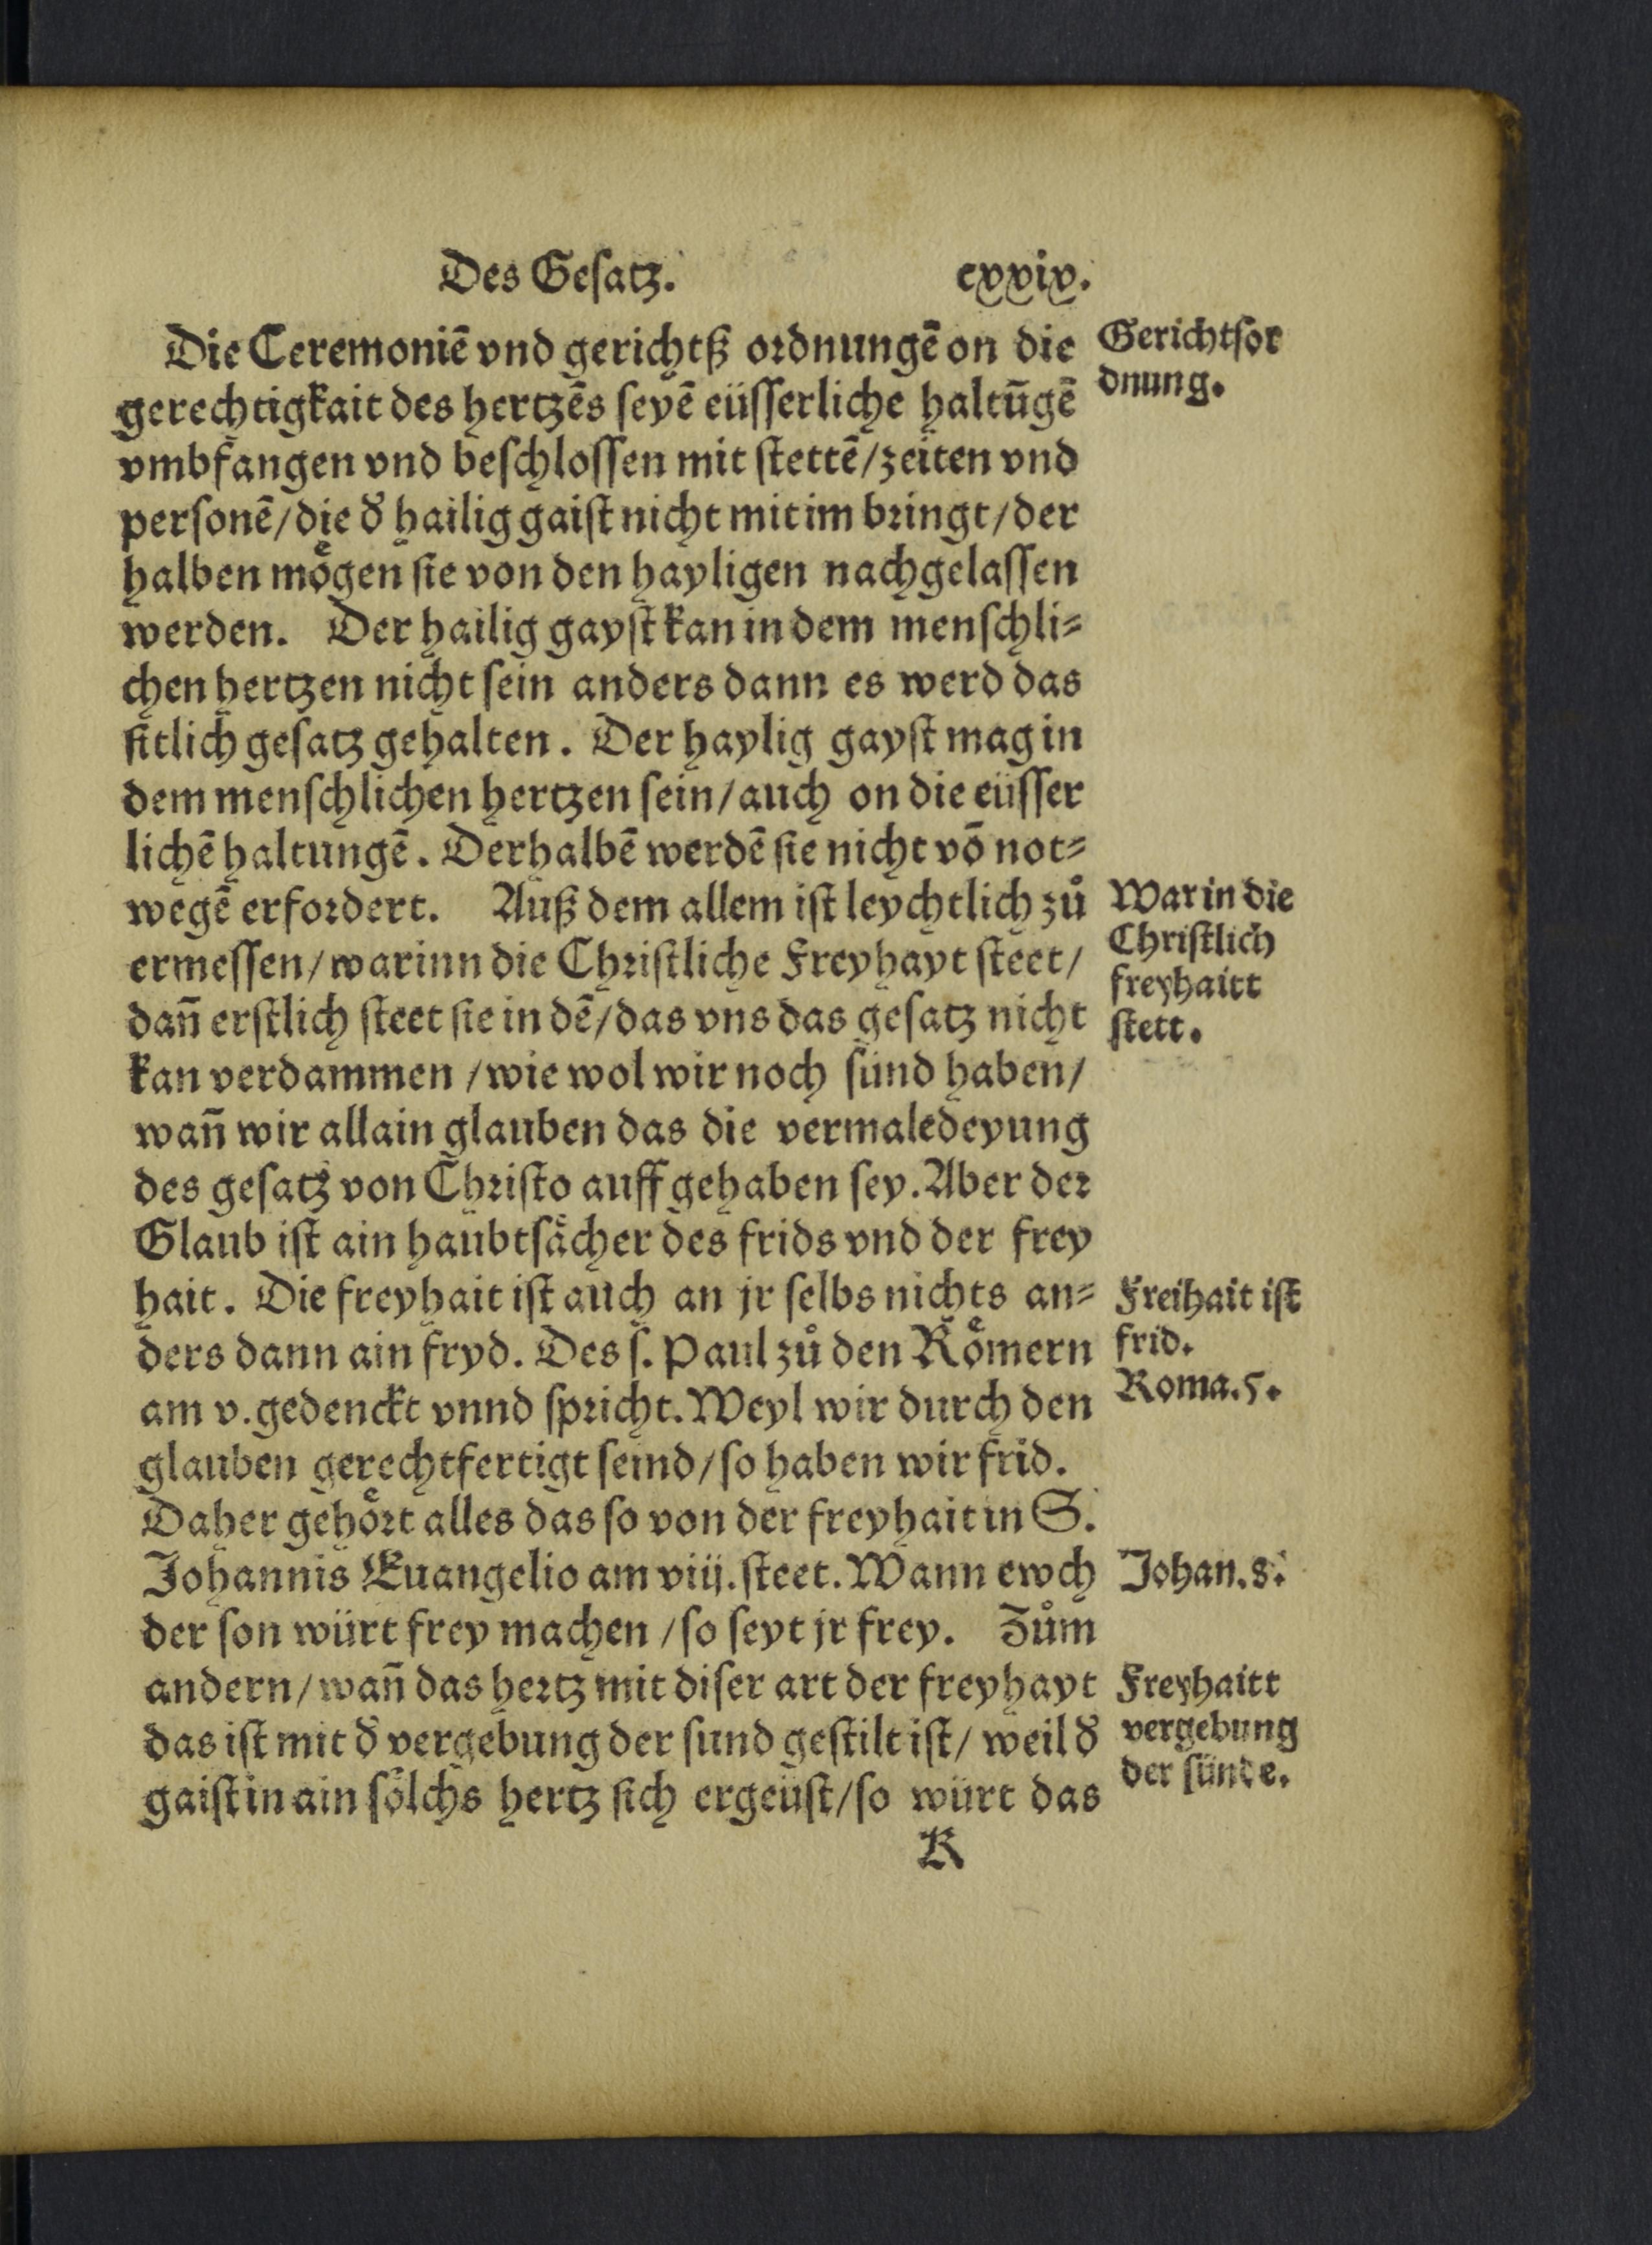 Des Gesatz. cxxix.
Die Ceremoniē vnd gerichtß ordnungē on die
gerechtigkait des hertzēs seyē eüsserliche haltūgē
vmbfangen vnd beschlossen mit stettē/zeiten vnd
personē/die d' hailig gaist nicht mit im bringt/der
halben mögen sie von den hayligen nachgelassen
werden. Der hailig gayst kan in dem menschli=
chen hertzen nicht sein anders dann es werd das
sitlich gesatz gehalten. Der haylig gayst mag in
dem menschlichen hertzen sein/auch on die eüsser
lichē haltungē. Derhalbē werdē sie nicht vō not=
wegē erfordert. Auß dem allem ist leychtlich zů
ermessen/warinn die Christliche Freyhayt steet/
dañ erstlich steet sie in dē/das vns das gesatz nicht
kan verdammen/wie wol wir noch sünd haben/
wañ wir allain glauben das die vermaledeyung
des gesatz von Christo auff gehaben sey. Aber der
Glaub ist ain haubtsächer des frids vnd der frey
hait. Die freyhait ist auch an jr selbs nichts an=
ders dann ain fryd. Des s. Paul zů den Römern
am v. gedenckt vnnd spricht. Weyl wir durch den
glauben gerechtfertigt seind/so haben wir frid.
Daher gehört alles das so von der freyhait in S.
Johannis Euangelio am viij. steet. Wann ewch
der son würt frey machen/so seyt jr frey. Zům
andern/wañ das hertz mit diser art der freyhayt
das ist mit d' vergebung der sund gestilt ist/weil d'
gaist in ain sölchs hertz sich ergeüst/so würt das
K
Gerichtsor
dnung.
War in die
Christlich
freyhaitt
stett.
Freihait ist
frid.
Roma.5.
Johan.8.
Freyhaitt
vergebung
der sünde.